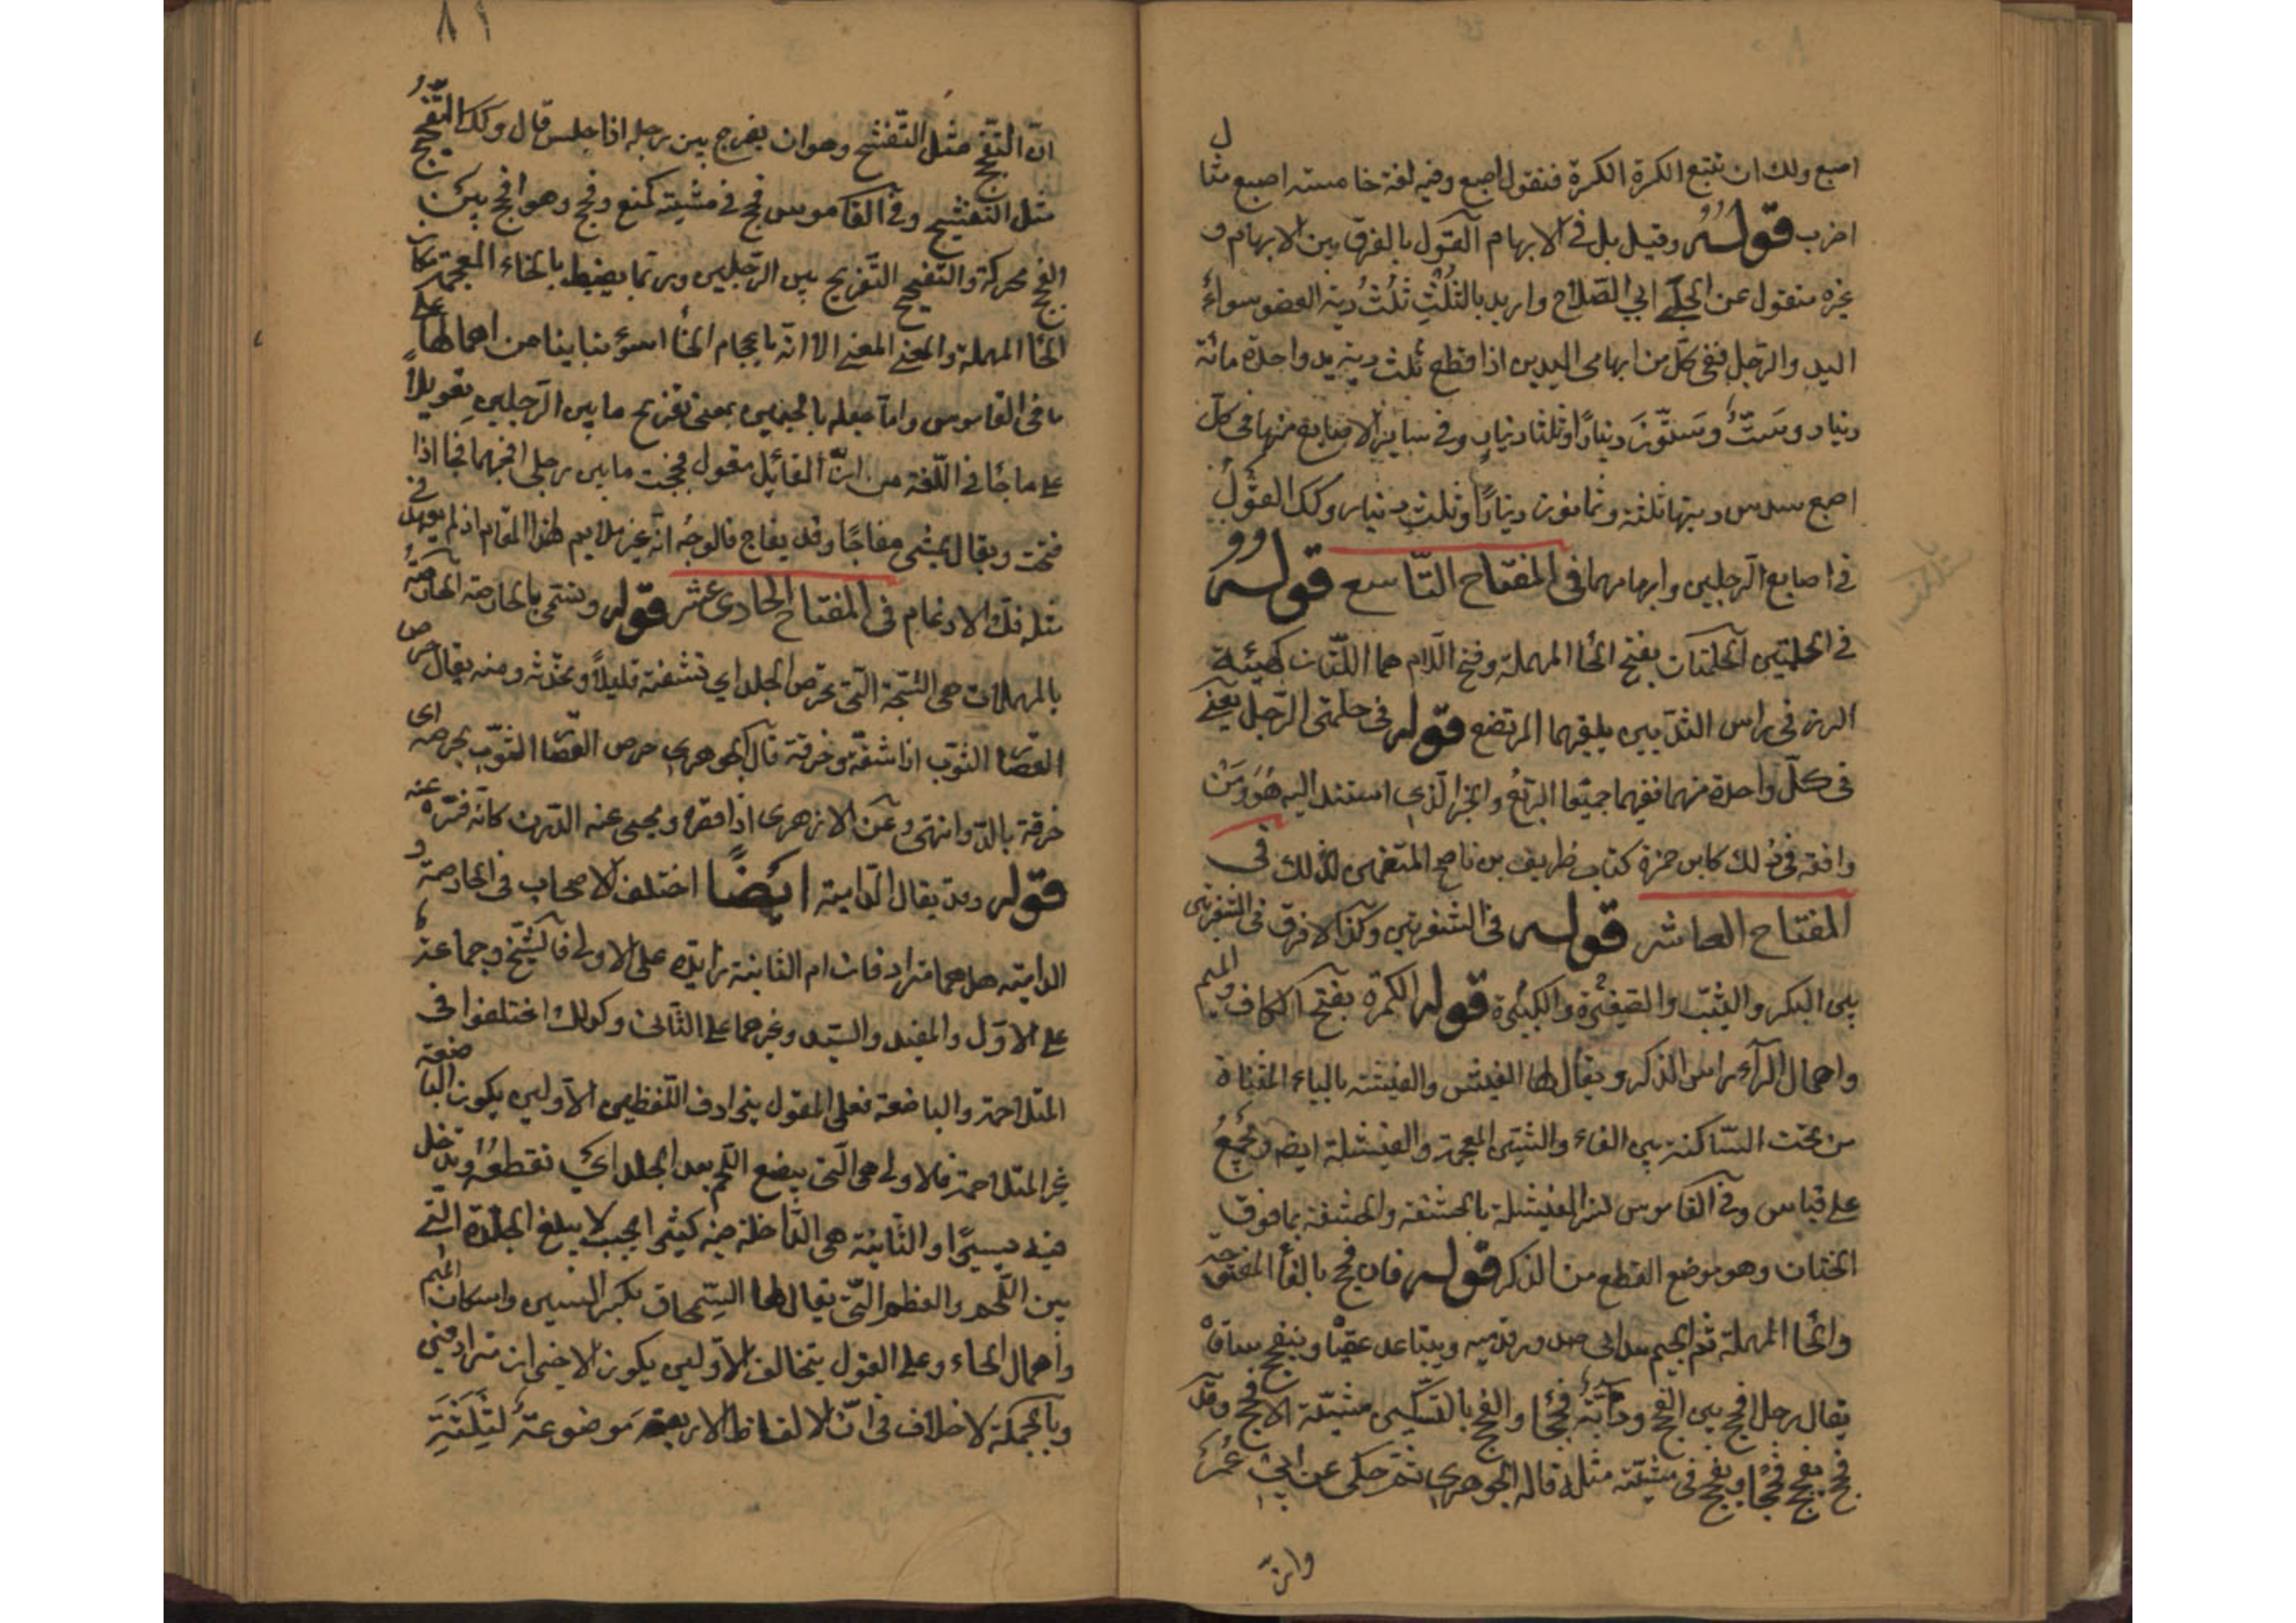 اصبع ولك ان تتبع الكسرة الكسرة فتقول اصبع وفيه لغة خامسة اصبع مثال
اضرب قوله وقيل بل في الابهام القول بالفرق بين الابهام و
غيره منقول عن الحلبي ابي الصلاح واريد بالثلث ثلث دية العضو سواء
اليد والرجل ففي كل من ابهامي اليدين اذا قطع ثلث دية يد واحدة مائة
دينار وست وستون دينارا وثلثا دينار وفي ساير الاصابع منها في كل
اصبع سدس ديتها ثلثة وثمانون دينارا وثلث دينار وكك القول
في اصابع الرجلين وابهامهما في المفتاح التاسع قوله
في الحلمتين الحلمتان بفتح الحا المهملة وفتح اللام هما اللتان كهيئة
الزر في راس الثديين يلتقمهما المرتضع قوله في حلمتي الرجل يعني
في كل واحدة منهما ففيهما جميعا الربع والخبر الذي استند اليه هو ومن
وافقه في ذلك كابن حمزة كتاب ظريف بن ناصح المتضمن لذلك في
المفتاح العاشر قوله في الشفرتين وكذا لا فرق في الشفرتين
بين البكر والثيب والصغيرة والكبيرة قوله الكمرة بفتح الكاف والميم
واهمال الراء راس الذكر ويقال لها الفيش والفيشة بالياء المثناة
من تحت الساكنة بين الفاء والشين المعجمة والفيشلة ايضا ويجمع
على قياس وفي القاموس فسر الفيشلة بالحشفة والحشفة بما فوق
الختان وهو موضع القطع من الذكر قوله فان فحج بالفا المفتوحة
والحا المهملة ثم الجيم تدانى صدور قدميه ويتباعد عقبا وينفحج ساقا
يقال رجل افحج بين الفحج ودابة فحجا والفحج بالتسكين مشية الافحج وقد
فحج يفحج فحجا ويفحج في مشيته مثله قاله الجوهري ثم حكى عن ابي عمر
وان
٨١
ان التفحج مثل التفشح وهو ان يفرج بين رجليه اذا جلس قال وكك التفحيج
مثل التفشيح وفي القاموس فحج في مشيته كمنع وفحج وهو افحج بين
الفحج محركة والتفحيج التفريج بين الرجلين وربما يضبط بالخاء المعجمة مكان
الحا المهملة والمعنى المعنى الا انه باعجام الخا اسوء تباينا من اهمالها على
ما في القاموس واما جعله بالجيمين بمعنى تفريج ما بين الرجلين تعويلا
على ما جا في اللغة من ان القائل يقول فججت ما بين رجلي افجهما فجا اذا
فتحت ويقال يمشي مفاجا وقد يفاج فالوجه انه غير ملايم لهذا المقام اذ لم يعهد في
مثله فك الادغام في المفتاح الحادي عشر قوله وتسمى بالحارصة الحارصة
بالمهملات هي الشجة التي تحرص الجلد اي تشقه قليلا وتخدشه ومنه يقال حرص
القصار الثوب اذا شقه وخرقه قال الجوهري حرص القصار الثوب يحرصه اي
خرقه بالدق انتهى وعن الازهري اذا قصره ونحى عنه الدرن كانه قشره عنه
قوله وقد يقال الدامية ايضا اختلف الاصحاب في الحارصة و
الدامية هل هما مترادفان ام الثانية زايدة على الاولى فالشيخ وجماعة
على الاول والمفيد والسيد وغيرهما على الثاني وكذلك اختلفوا في
المتلاحمة والباضعة فعلى القول بترادف اللفظين الاولين يكون الباضعة
غير المتلاحمة فالاولى هي التي يبضع اللحم بعد الجلد اي تقطعه ويدخل
فيه يسيرا والثانية هي الداخلة فيه كثيرا بحيث لا يبلغ الجلدة التي
بين اللحم والعظم التي يقال لها السمحاق بكسر السين واسكان الميم
واهمال الحاء وعلى القول بتخالف الاولين يكون الاخيران مترادفين
وبالجملة لا خلاف في ان الالفاظ الاربعة موضوعة لثلثة